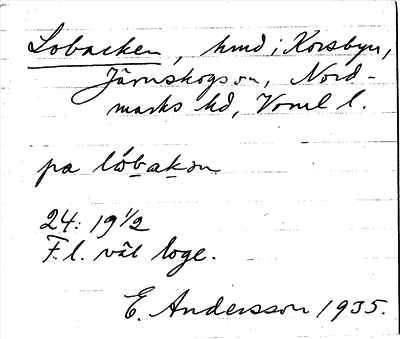 Lobacken, hmd i Korsbyn,
Järnskogs sn, Nord-
marks hd, Vrml l.
pa lóbakən
24: 19 1/2
F. l. väl loge.
E. Andersson 1935.